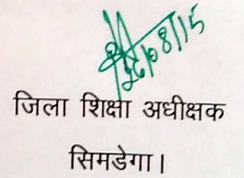 26/08/15
जिला शिक्षा अधीक्षक
सिमडेगा।